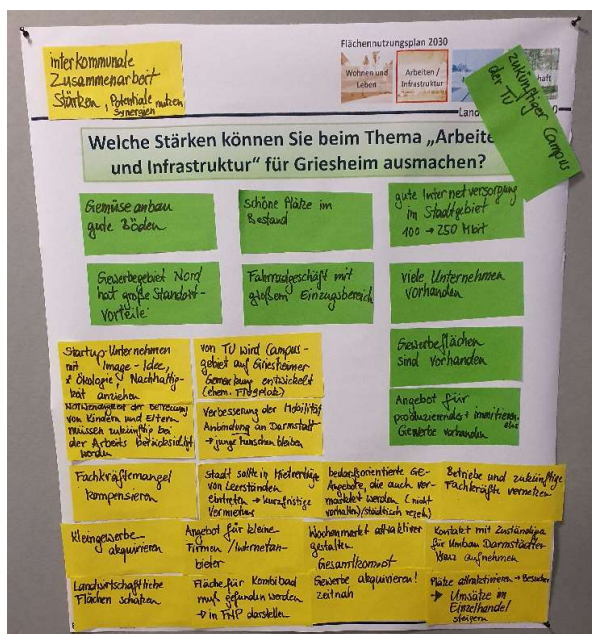 interkommunale
Zusammenarbeit
Stärken, Potentiale nutzen
Synergien
Flächennutzungsplan 2030
Wohnen und
Leben
Arbeiten /
Infrastruktur
zukünftiger Campus
der TU
Welche Stärken können Sie beim Thema „Arbeite
und Infrastruktur“ für Griesheim ausmachen?
Gemüseanbau
gute Böden
schöne Plätze im
Bestand
gute Internetversorgung
im Stadtgebiet
100 → 250 Mbit
Gewerbegebiet Nord
hat große Standort-
vorteile
Fahrradgeschäft mit
großem Einzugsbereich
viele Unternehmen
vorhanden
Gewerbeflächen
sind vorhanden
Angebot für
produzierendes +
Gewerbe vorhanden
Startup-Unternehmen
mit Image-Idee,
Ökologie/Nachhaltig-
keit anziehen
von TU wird Campus-
gebiet auf Griesheimer
Gemarkung entwickelt
(ehem. Flugplatz)
Notwendigkeit der Betreuung
von Kindern und Eltern
müssen zukünftig bei
der Arbeits berücksichtigt
werden
Verbesserung der Mobilität
Anbindung an Darmstadt
→ junge Menschen bleiben
Fachkräftemangel
kompensieren
Stadt sollte in Mietverträge
von Leerständen
eintreten → kurzfristige
Vermietung
bedarfsorientierte GE-
Angebote, die auch ver-
marktet werden (nicht
vorhalten)/städtisch
Betriebe und zukünftige
Fachkräfte vernetzen
Kleingewerbe
akquirieren
Angebot für kleine
Firmen / Internetan-
bieter
Wochenmarkt attraktiver
gestalten
Gesamtkonzept
Kontakt mit Zuständigen
für Umbau Darmstädter
Kreuz aufnehmen
Landwirtschaftliche
Flächen schützen
Fläche für Kombibad
muß gefunden werden
→ in FNP darstellen
Gewerbe akquirieren!
zeitnah
Plätze attraktivieren → Besucher
→ Umsätze im
Einzelhandel
steigern